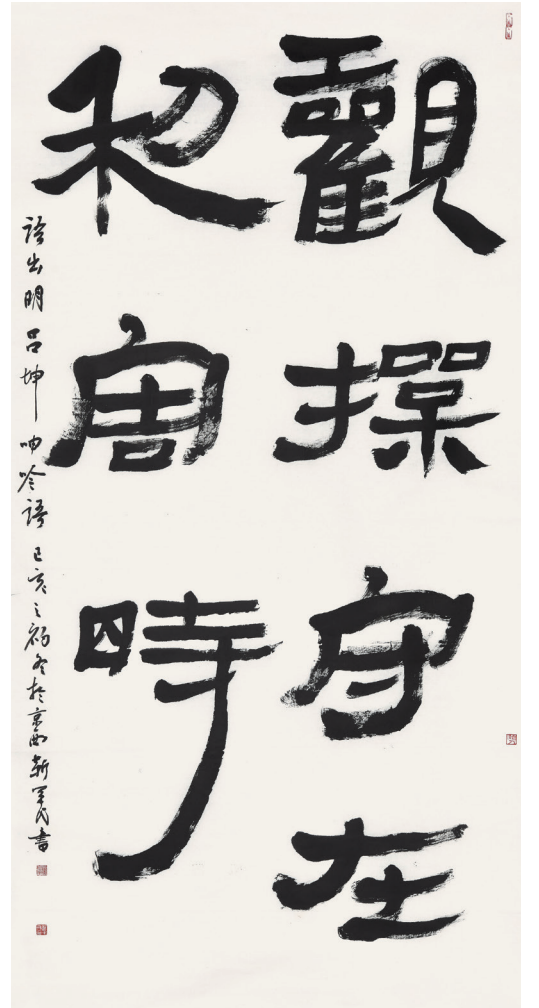 觀操守在
利害時
語出明呂坤呻吟語己亥之初冬於京西書